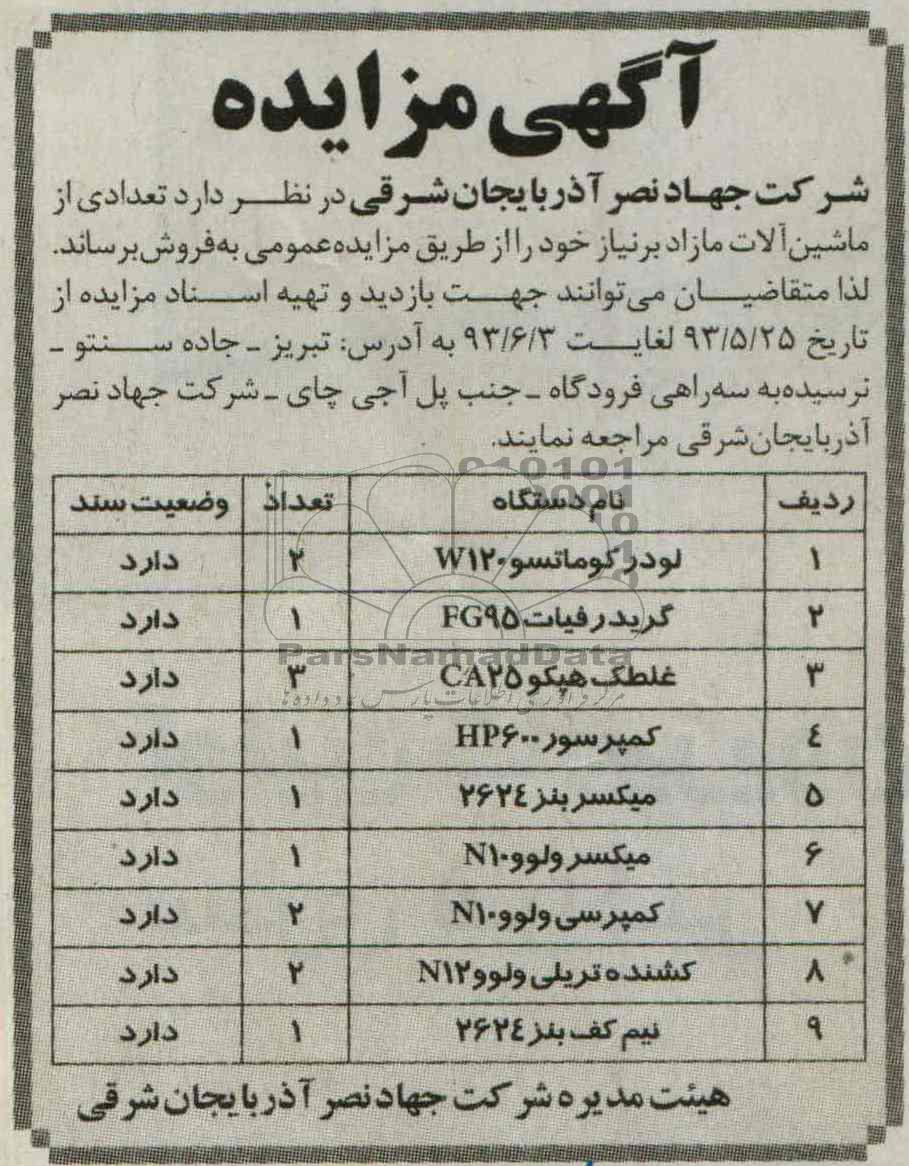 آگهی مزایده
شرکت جهاد نصر آذربایجان شرقی در نظر دارد تعدادی از
ماشین‌آلات مازاد برنیاز خود را از طریق مزایده عمومی به‌فروش برساند.
لذا متقاضیان می‌توانند جهت بازدید و تهیه اسناد مزایده از
تاریخ ۹۳/۵/۲۵ لغایت ۹۳/۶/۳ به آدرس: تبریز ـ جاده سنتو ـ
نرسیده‌به سه‌راهی فرودگاه ـ جنب پل آجی چای ـ شرکت جهاد نصر
آذربایجان‌شرقی مراجعه نمایند.
ردیف نام دستگاه تعداد وضعیت سند
۱ لودر کوماتسو W۱۲۰ ۲ دارد
۲ گریدر فیات FG۹۵ ۱ دارد
۳ غلطک هپکو CA۲۵ ۳ دارد
٤ کمپرسور HP۶۰۰ ۱ دارد
۵ میکسر بنز ۲۶۲٤ ۱ دارد
۶ میکسر ولوو N۱۰ ۱ دارد
۷ کمپرسی ولوو N۱۰ ۲ دارد
۸ کشنده تریلی ولوو N۱۲ ۲ دارد
۹ نیم کف بنز ۲۶۲٤ ۱ دارد
هیئت مدیره شرکت جهاد نصر آذربایجان شرقی
ParsNamadData